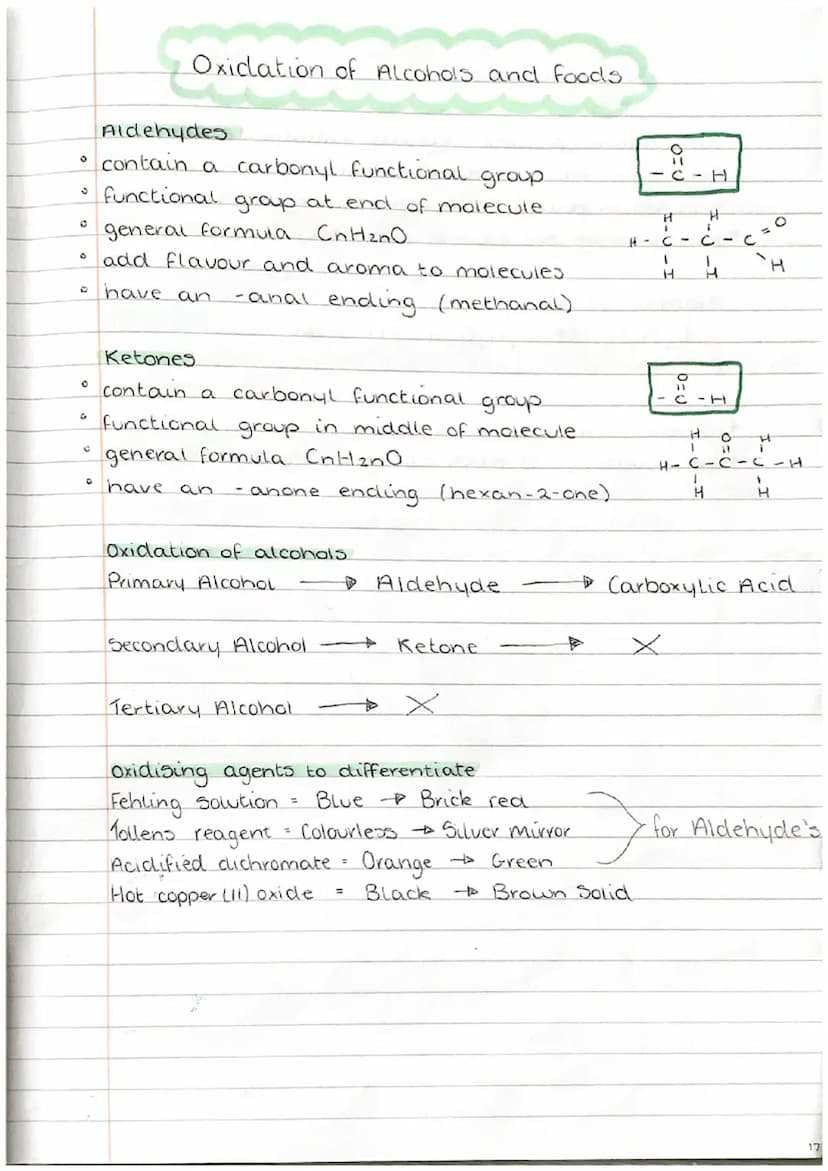 Oxidation of Alcohols and Foods
Aldehydes
• contain a carbonyl functional group
• functional group at end of molecule
• general formula CnH2nO
• add flavour and aroma to molecules
• have an -anal ending (methanal)
O
=
- C - H
H H
H - C - C - C = O
H H \ H
Ketones
• contain a carbonyl functional group
• functional group in middle of molecule
• general formula CnH2nO
• have an -anone ending (hexan-2-one)
O
=
- C - H
H O H
H - C - C - C - H
H H
Oxidation of alcohols
Primary Alcohol → Aldehyde → Carboxylic Acid
Secondary Alcohol → Ketone → X
Tertiary Alcohol → X
Oxidising agents to differentiate
Fehling solution = Blue → Brick red
Tollens reagent = Colourless → Silver mirror
for Aldehyde's
Acidified dichromate = Orange → Green
Hot copper (II) oxide = Black → Brown Solid
17